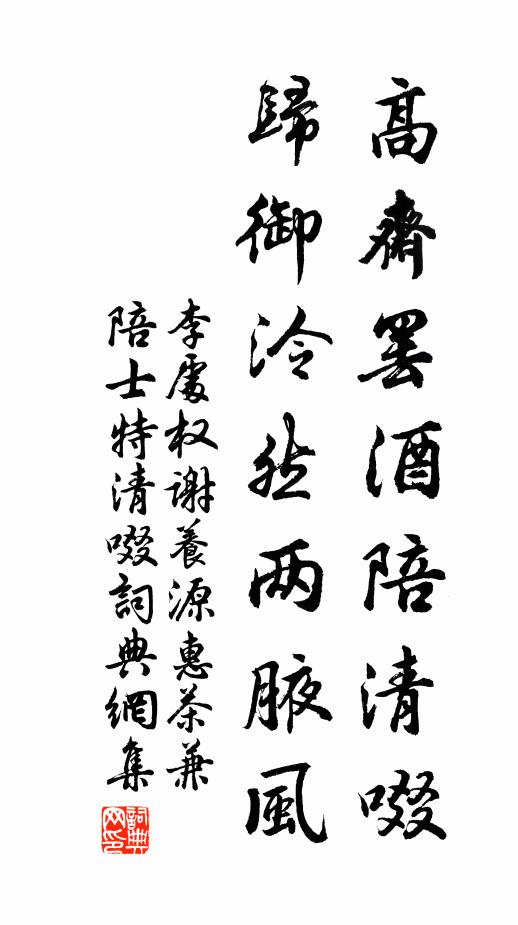 高齋罷酒陪清啜
歸御泠然两腋風
李處权謝養源惠茶兼
陪士特清啜詞典網集
詞典网印